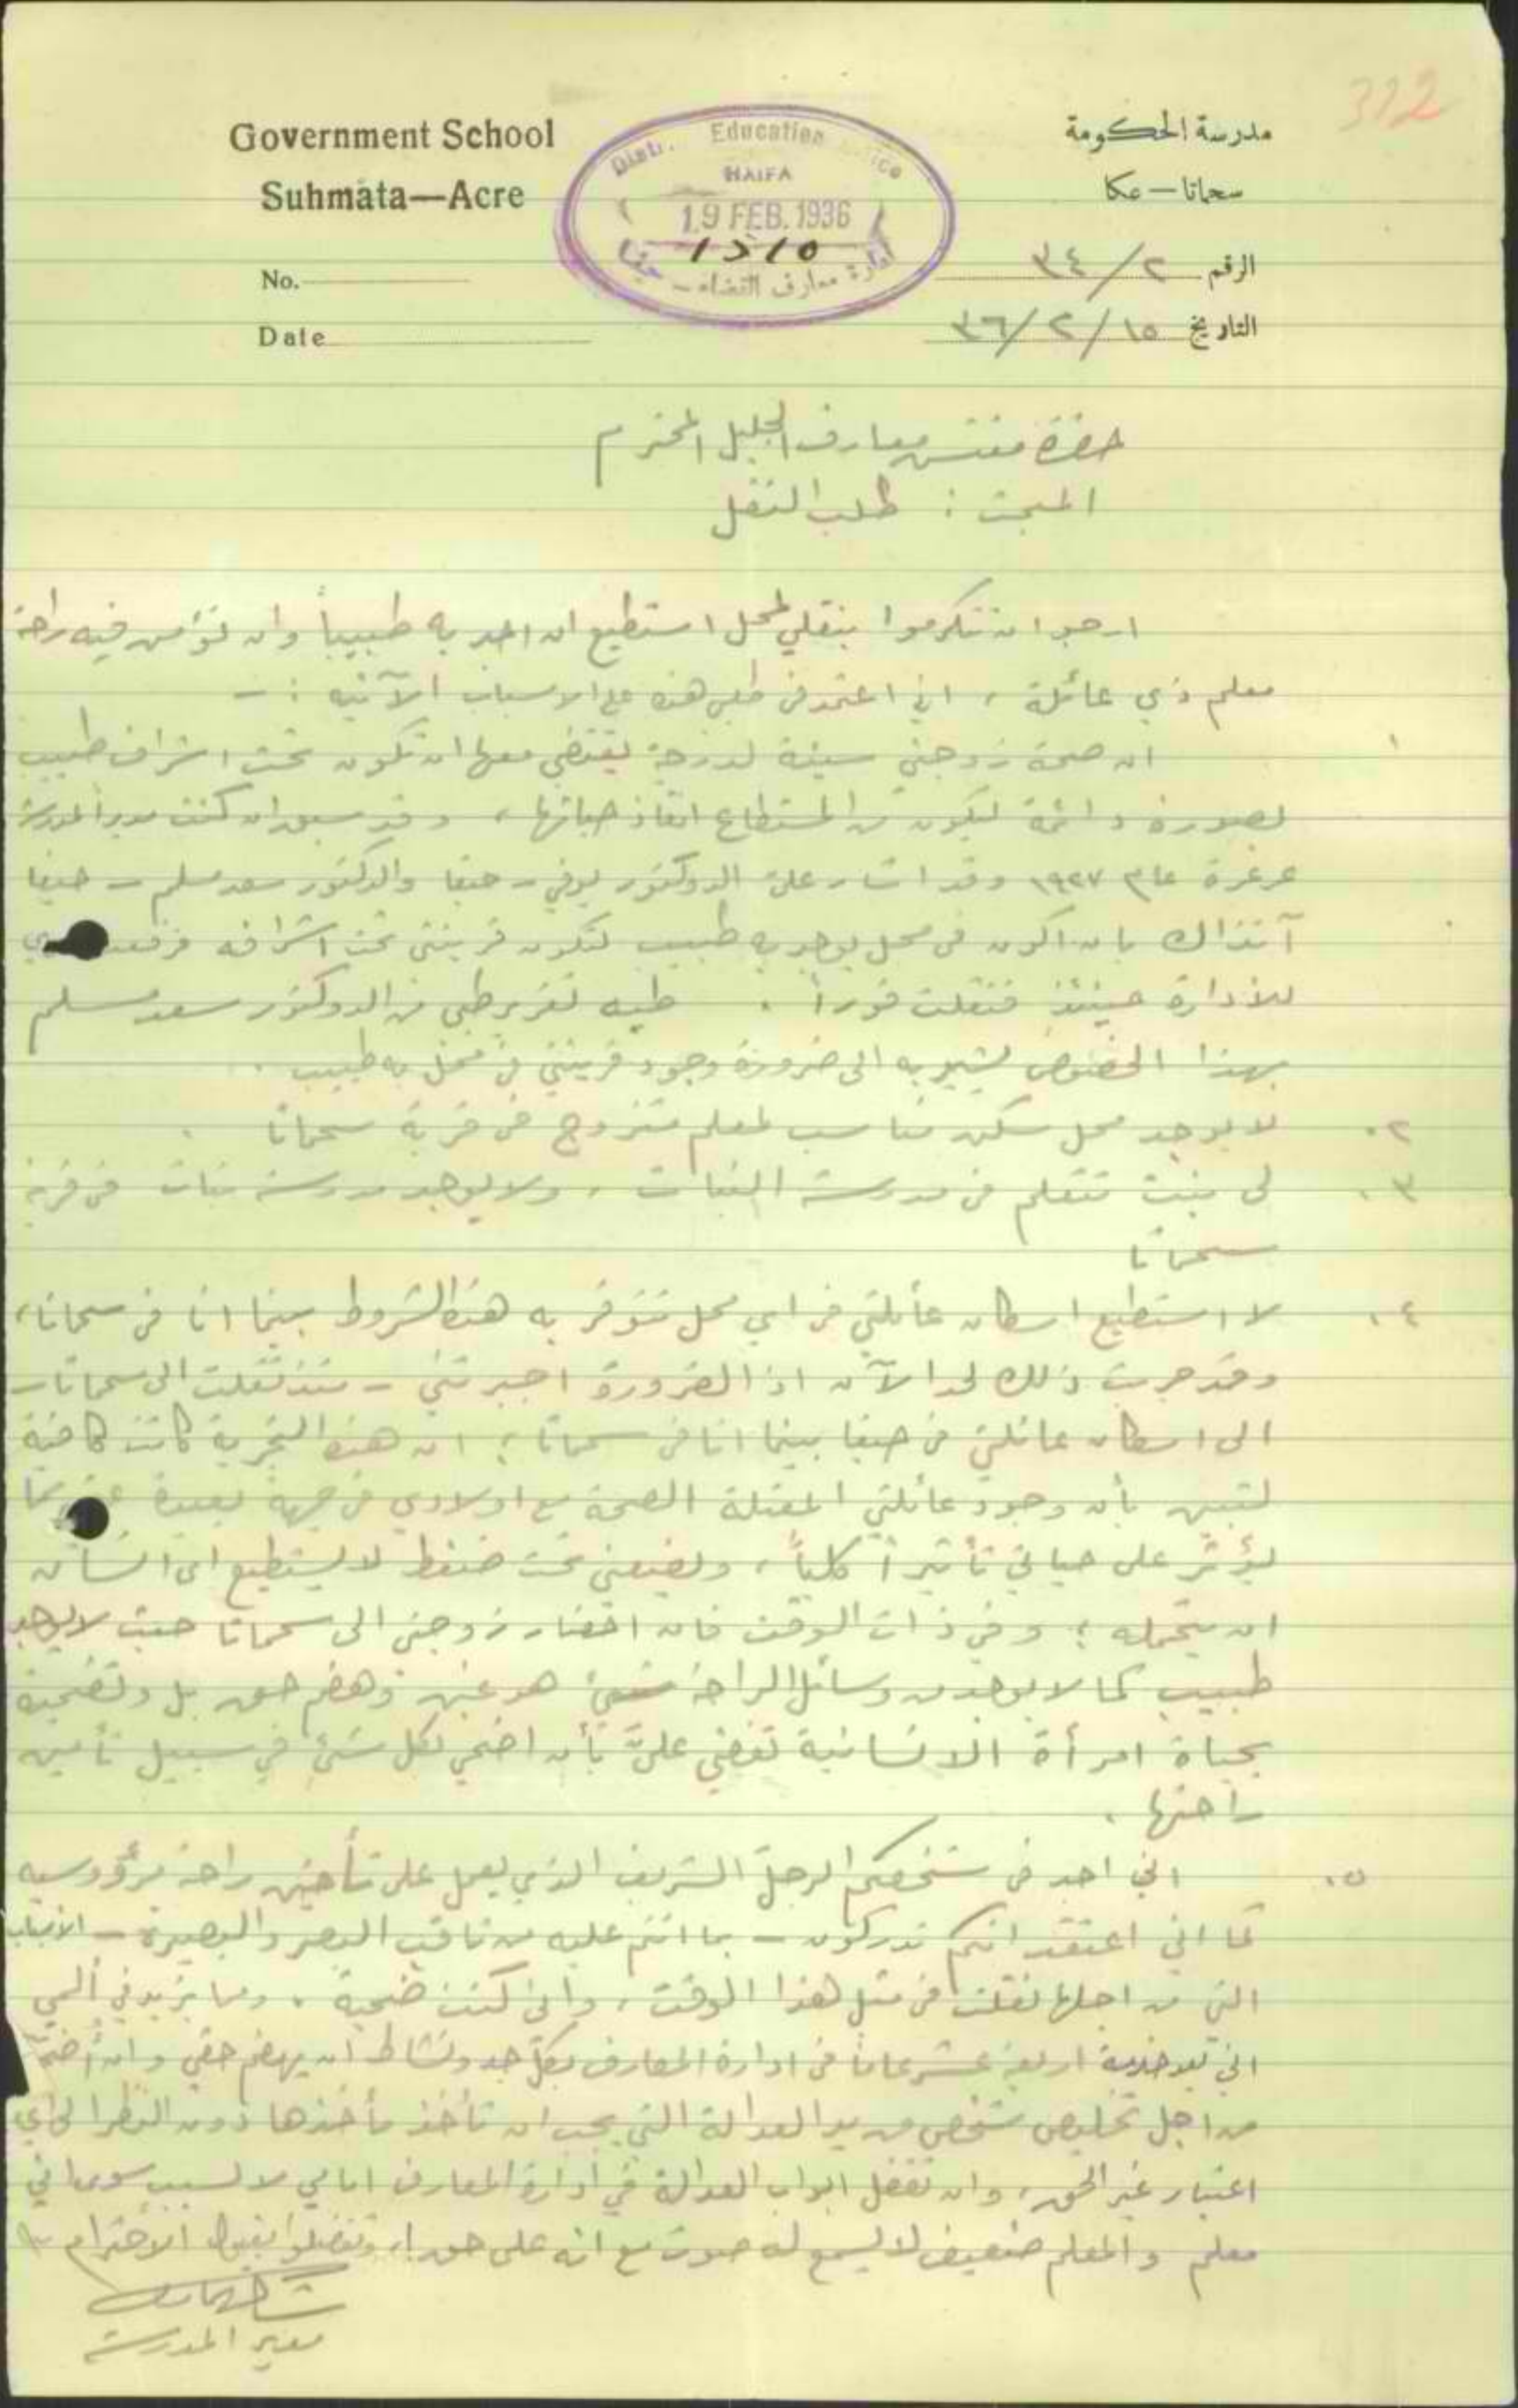 322
Government School
Suhmata—Acre
No.
Date
Distr. Education Office
HAIFA
19 FEB. 1936
١٢١٥
ادارة معارف القضاء - حيفا
مدرسة الحكومة
سحماتا – عكا
الرقم ٣٤/٢
التاريخ ٣٦/٢/١٥
حضرة مفتش معارف الجليل المحترم
المبحث : طلب النقل
ارجو ان تتكرموا بنقلي لمحل استطيع ان اجد به طبيباً وان تؤمن فيه راحة
معلم ذي عائلة ، اني اعتمد في طلبي هذا على الاسباب الآتيه : -
١ ان صحة زوجتي سيئة لدرجة يقتضي معها ان تكون تحت اشراف طبيب
بصورة دائمة ليكون من المستطاع انقاذ حياتها ، وقد سبق ان كنت مديراً لمدرسة
عرعرة عام ١٩٢٧ وقد اشار علي الدوكتور - حيفا والدكتور سعد مسلم - حيفا
آنذاك بان اكون في محل يوجد به طبيب لتكون قرينتي تحت اشرافه
للادارة حينئذ فنقلت فوراً . طيه تقرير طبي من الدوكتور سعد مسلم
بهذا الخصوص يشير به الى ضرورة وجود قرينتي في محل به طبيب .
٢. لا يوجد محل سكن مناسب لمعلم متزوج في قرية سحماتا .
٣. لي بنت تتعلم في مدرسة البنات ، ولا يوجد مدرسة بنات في قرية
سحماتا
٤. لا استطيع اسكان عائلتي في اي محل تتوفر به هذه الشروط بينما انا في سحماتا ،
وقد جربت ذلك لحد الآن اذ الضرورة اجبرتني - منذ نقلت الى سحماتا -
الى اسكان عائلتي في حيفا بينما انا في سحماتا ؛ ان هذه التجربة كانت كافية
لتبين بأن وجود عائلتي المعتلة الصحة مع اولادي في جهة بعيدة عني مما
يؤثر على حياتي تأثيراً كلياً ، ويضعني تحت ضغط لا يستطيع اي انسان
ان يتحمله ؛ وفي ذات الوقت فان احضار زوجتي الى سحماتا حيث لا يوجد
طبيب كما لا يوجد من وسائل الراحة شيئ هو غبن وهضم حق بل وتضحية
بحياة امرأة الانسانية تقضي عليّ بأن اضحي بكل شئ في سبيل تأمين
راحتها .
٥. اني اجد في شخصكم الرجل الشريف الذي يعمل على تأمين راحة مرؤوسيه
كما اني اعتقد انكم تدركون - بما انتم عليه من ثاقب البصر والبصيرة - الاسباب
التي من اجلها نقلت في مثل هذا الوقت ، واني كنت ضحية . ومما يزيد في ألمي
اني بعد خدمة اربعة عشر عاماً في ادارة المعارف بكل جد ونشاط ان يهضم حقي وان
من اجل تخليص شخص من يد العدالة التي يجب ان تأخذ مأخذها دون النظر الى اي
اعتبار غير الحق ، وان تقفل ابواب العدالة في ادارة المعارف امامي لا لسبب سوى اني
معلم والمعلم ضعيف لا يسمع له صوت مع انه على حق ! وتفضلوا بقبول الاحترام
مدير المدرسة